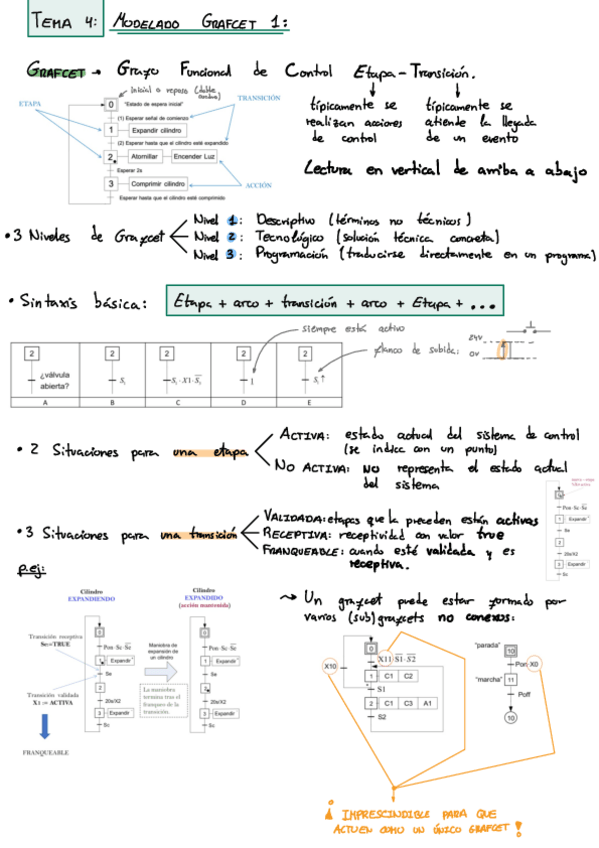 TEMA 4: MODELADO GRAFCET 1:
GRAFCET → Grafo Funcional de Control Etapa-Transición.
inicial o reposo (doble
típicamente se
realizan acciones
de control
típicamente se
atiende la llegada
de un evento
Lectura en vertical de arriba a abajo
ETAPA
TRANSICIÓN
ACCIÓN
0 "Estado de espera inicial"
(1) Esperar señal de comienzo
1 Expandir cilindro
(2) Esperar hasta que el cilindro esté expandido
2 Atornillar Encender Luz
Esperar 2s
3 Comprimir cilindro
Esperar hasta que el cilindro esté comprimido
• 3 Niveles de Grafcet
Nivel 1: Descriptivo (términos no técnicos)
Nivel 2: Tecnológico (solución técnica concreta)
Nivel 3: Programación (traducirse directamente en un programa)
• Sintaxis básica: Etapa + arco + transición + arco + Etapa + ...
siempre está activo
flanco de subida:
24V
0V
2 2 2 2 2
¿válvula
abierta?
S₁
1
S₁↑
A B C D E
• 2 Situaciones para una etapa
ACTIVA: estado actual del sistema de control
(se indica con un punto)
NO ACTIVA: NO representa el estado actual
del sistema
• 3 Situaciones para una transición
VALIDADA: etapas que la preceden están activas
RECEPTIVA: receptividad con valor true
FRANQUEABLE: cuando esté validada y es
receptiva.
Pon·Sc·S̅e̅
1 Expandir
Se
2
20s/X2
3 Expandir
Sc
p.ej:
Cilindro
EXPANDIENDO
Transición receptiva
Se:=TRUE
Transición validada
X1 := ACTIVA
FRANQUEABLE
0
Pon·Sc·S̅e̅
1 Expandir
Se
2
20s/X2
3 Expandir
Sc
Maniobra de
expansión de
un cilindro
La maniobra
termina tras el
franqueo de la
transición.
Cilindro
EXPANDIDO
(acción mantenida)
0
Pon·Sc·S̅e̅
1 Expandir
Se
2
20s/X2
3 Expandir
Sc
→ Un grafcet puede estar formado por
varios (sub)grafcets no conexos:
0
X10
X11·S̅1̅·S̅2̅
1 C1 C2
S1
2 C1 C3 A1
S2
"parada" 10
Pon·X0
"marcha" 11
Poff
10
¡IMPRESCINDIBLE PARA QUE
ACTUEN COMO UN ÚNICO GRAFCET!